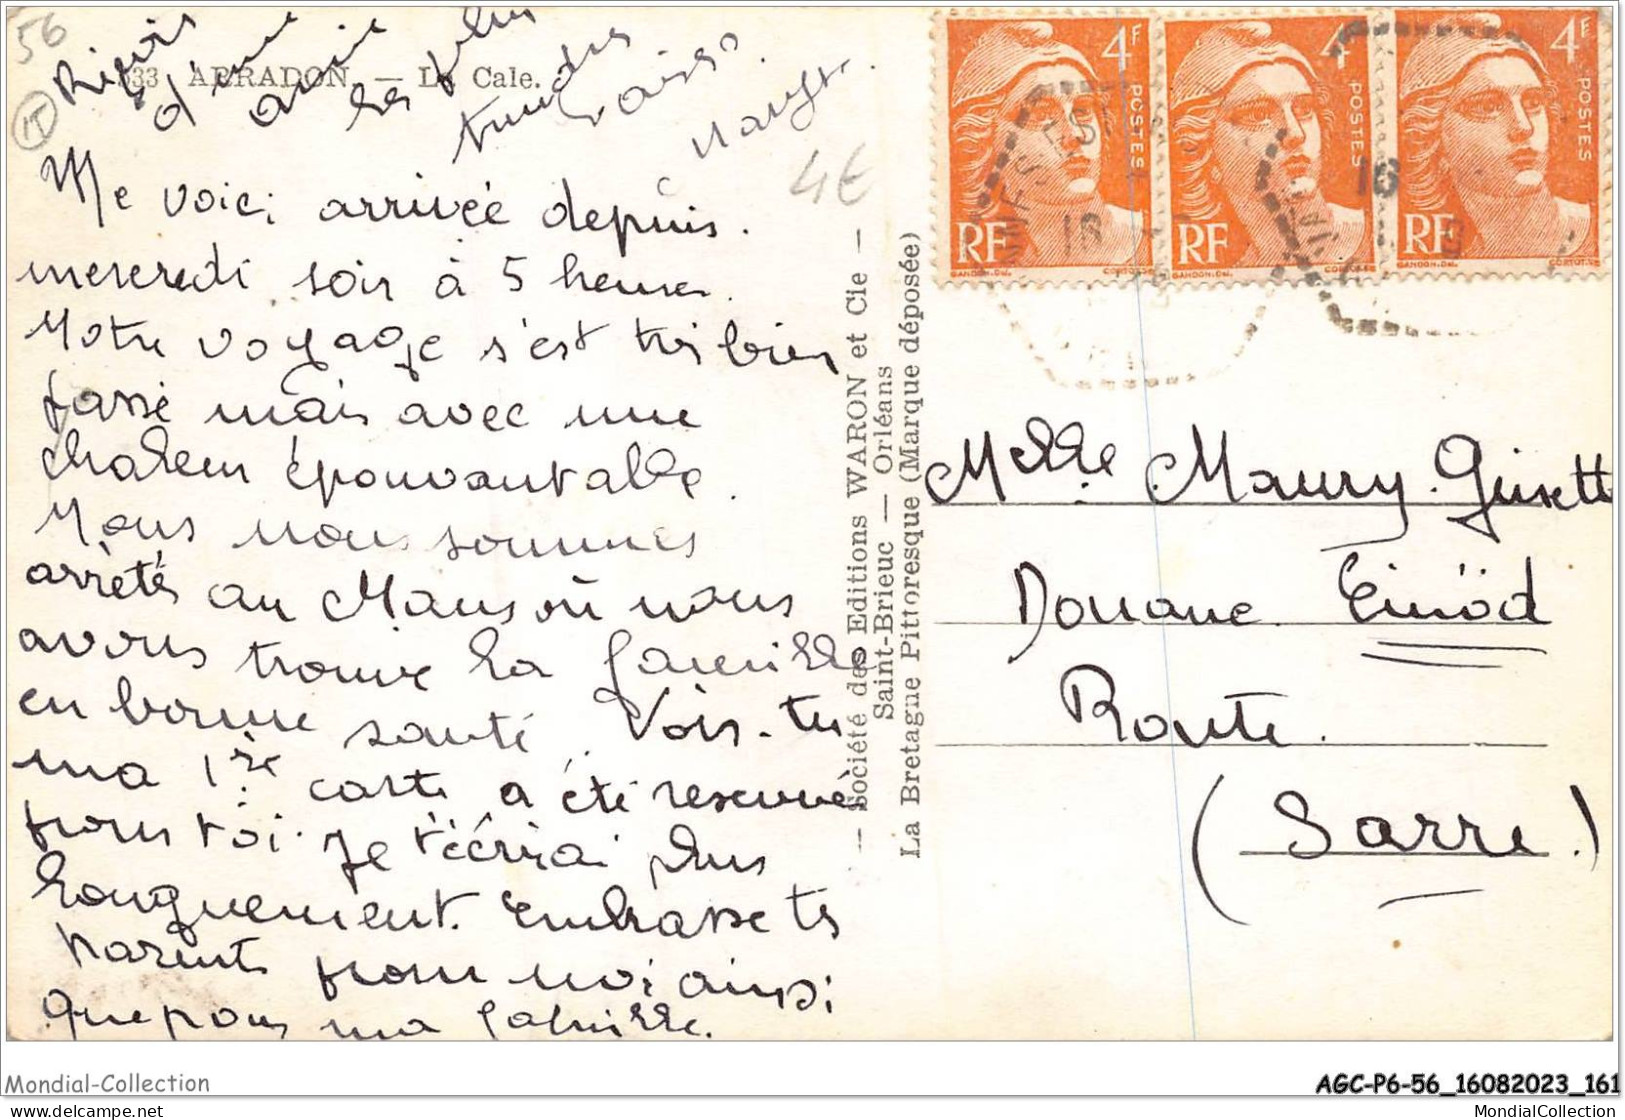 56
533 ARRADON. — La Cale.
d'une amie les plus
tendres
Me voici arrivée depuis
mercredi soir à 5 heures.
Notre voyage s'est très bien
passé mais avec une
chaleur épouvantable.
Nous nous sommes
arrêtés au Mans où nous
avons trouvé la famille
en bonne santé. Vois-tu
ma 1ère carte a été reservée
pour toi. Je t'écrirai plus
longuement. Embrasse tes
parents pour moi ainsi
que pour ma famille.
4€
— Société des Editions WARON et Cie —
Saint-Brieuc — Orléans
La Bretagne Pittoresque (Marque déposée)
4F POSTES RF
4F POSTES RF
4F POSTES RF
16
Melle Maury Ginette
Douane Einöd
Route
(Sarre.)
Mondial-Collection
AGC-P6-56_16082023_161
www.delcampe.net
MondialCollection